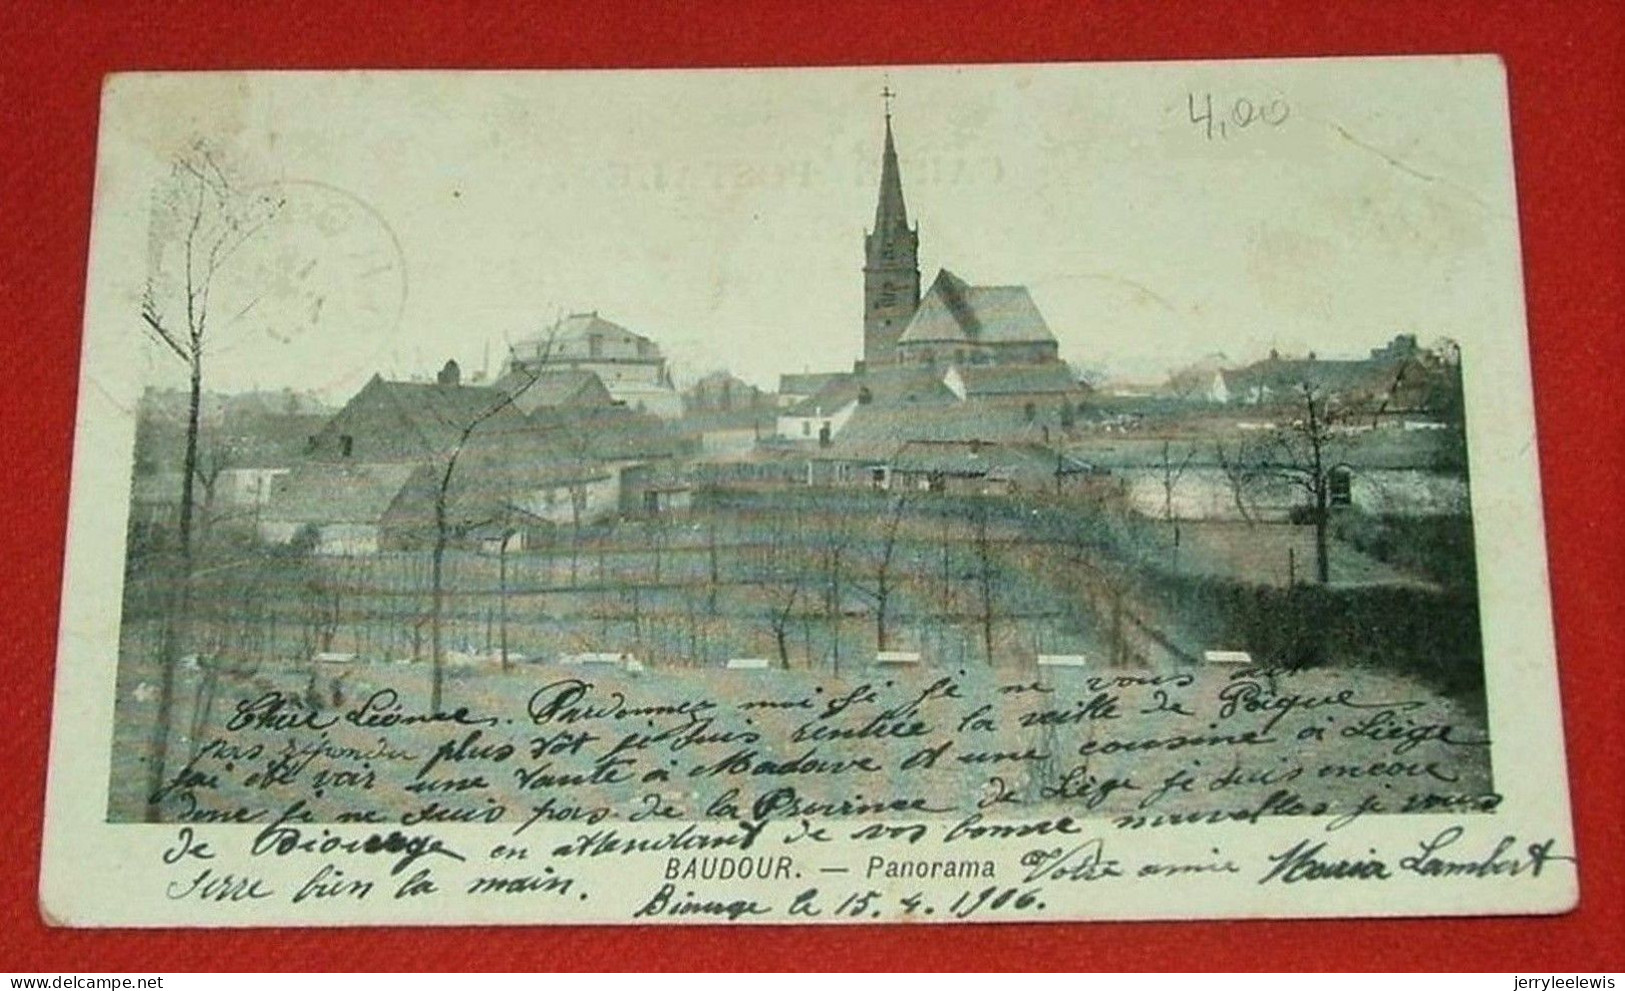 4,00
CARTE POSTALE
Chère Léonce. Pardonnez moi si je ne vous ai
pas répondu plus tôt je suis rentrée la veille de Pâques
j'ai été voir une tante à Madave et une cousine à Liège
donc je ne suis pas de la Province de Liège je suis encore
de Biourge en attendant de vos bonne nouvelles je vous
serre bien la main.
BAUDOUR. — Panorama
Votre amie Maria Lambert
Biourge le 15.4.1906.
jerryleelewis